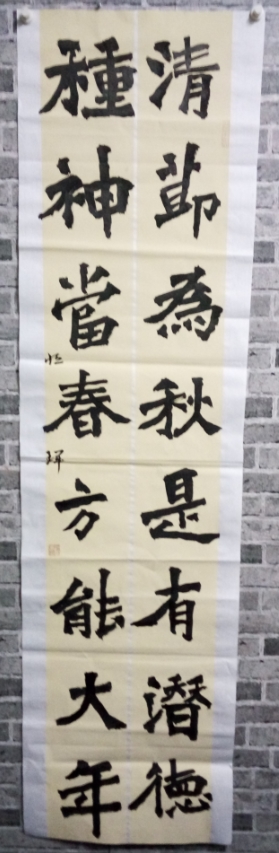 清節為秋是有潛德
種神當春方能大年